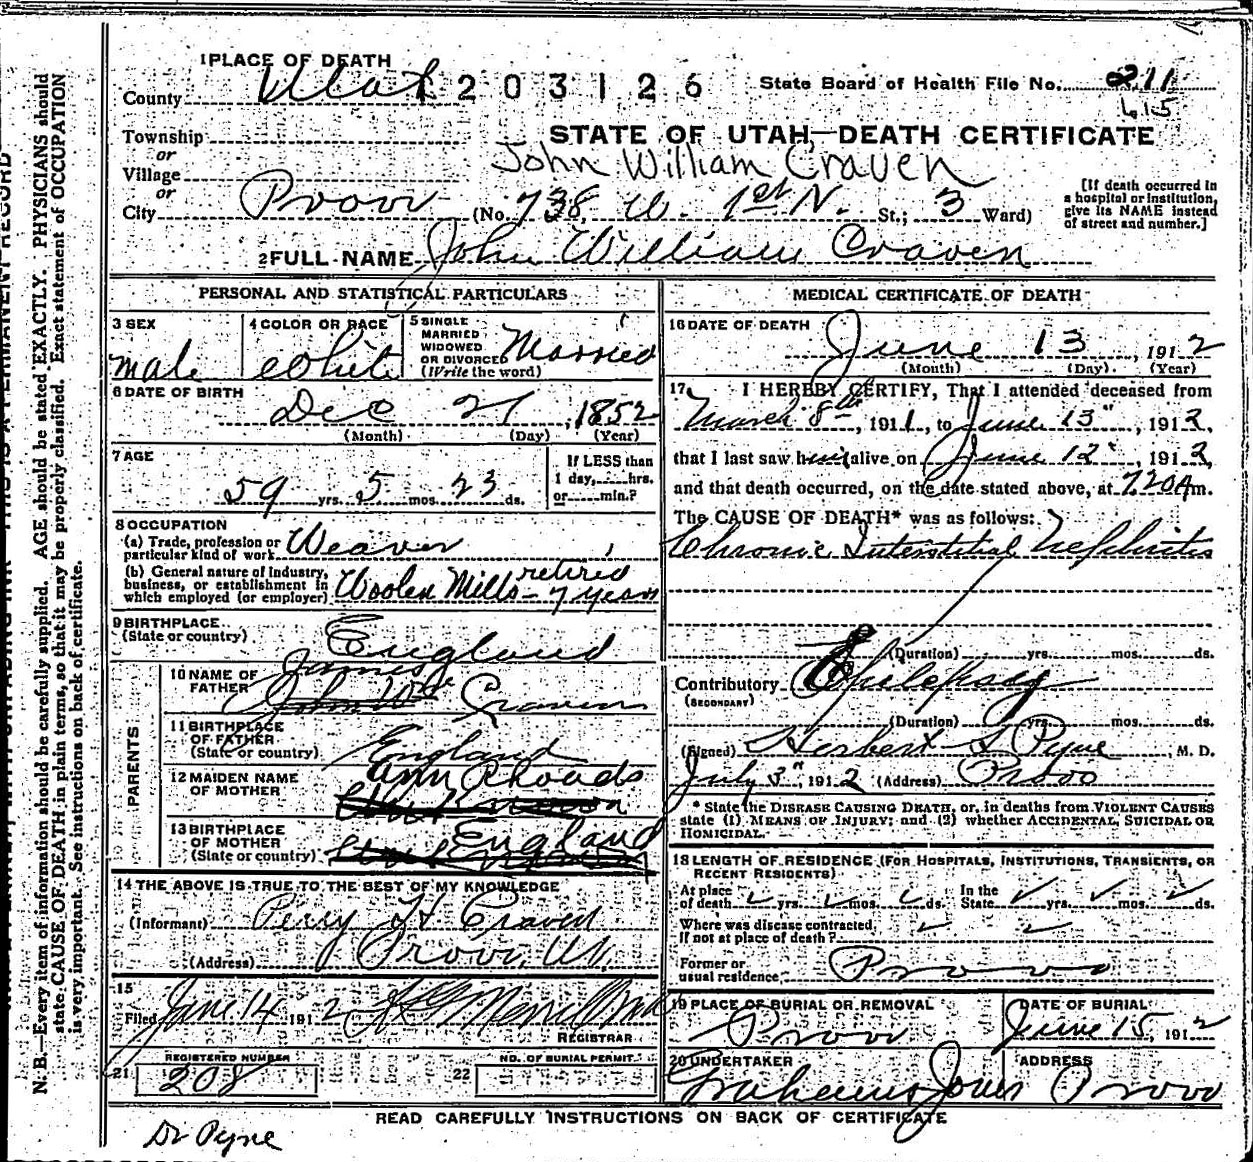 1 PLACE OF DEATH
County Utah 1203126 State Board of Health File No. 211
615
Township
or
STATE OF UTAH—DEATH CERTIFICATE
John William Craven
Village
or
City Provo (No. 738, W. 1st N. St.; 3 Ward)
[If death occurred in
a hospital or institution,
give its NAME instead
of street and number.]
2 FULL NAME John William Craven
PERSONAL AND STATISTICAL PARTICULARS
3 SEX
male
4 COLOR OR RACE
White
5 SINGLE
MARRIED
WIDOWED
OR DIVORCED
(Write the word)
Married
6 DATE OF BIRTH
Dec 21, 1852
(Month) (Day) (Year)
7 AGE
59 yrs. 5 mos. 23 ds.
If LESS than
1 day, hrs.
or min.?
8 OCCUPATION
(a) Trade, profession or
particular kind of work Weaver
(b) General nature of industry,
business, or establishment in
which employed (or employer) Woolen Mills - retired
7 years
9 BIRTHPLACE
(State or country) England
PARENTS
10 NAME OF
FATHER
James
John Wm Craven
11 BIRTHPLACE
OF FATHER
(State or country) England
12 MAIDEN NAME
OF MOTHER
Ann Rhoads
13 BIRTHPLACE
OF MOTHER
(State or country) England
14 THE ABOVE IS TRUE TO THE BEST OF MY KNOWLEDGE
(Informant) Percy H Craven
(Address) Provo, Ut.
15
Filed June 14 1912
REGISTRAR
REGISTERED NUMBER
21 208
NO. OF BURIAL PERMIT
22
MEDICAL CERTIFICATE OF DEATH
16 DATE OF DEATH
June 13, 1912
(Month) (Day) (Year)
17 I HEREBY CERTIFY, That I attended deceased from
March 8th, 1911, to June 13", 1912,
that I last saw him alive on June 12", 1912,
and that death occurred, on the date stated above, at 7.20Am.
The CAUSE OF DEATH* was as follows:
Chronic Interstitial Nephritis
(Duration) yrs. mos. ds.
Contributory Epilepsy
(SECONDARY)
(Duration) yrs. mos. ds.
(Signed) Herbert S Pyne, M. D.
July 3", 1912 (Address) Provo
* State the DISEASE CAUSING DEATH, or, in deaths from VIOLENT CAUSES
state (1) MEANS OF INJURY; and (2) whether ACCIDENTAL, SUICIDAL OR
HOMICIDAL.
18 LENGTH OF RESIDENCE (FOR HOSPITALS, INSTITUTIONS, TRANSIENTS, OR
RECENT RESIDENTS)
At place
of death yrs. mos. ds. In the
State yrs. mos. ds.
Where was disease contracted,
if not at place of death?
Former or
usual residence Provo
19 PLACE OF BURIAL OR REMOVAL
Provo
DATE OF BURIAL
June 15, 1912
20 UNDERTAKER
ADDRESS
Provo
READ CAREFULLY INSTRUCTIONS ON BACK OF CERTIFICATE
Dr Pyne
N. B.—Every item of information should be carefully supplied. AGE should be stated EXACTLY. PHYSICIANS should
state CAUSE OF DEATH in plain terms, so that it may be properly classified. Exact statement of OCCUPATION
is very important. See instructions on back of certificate.